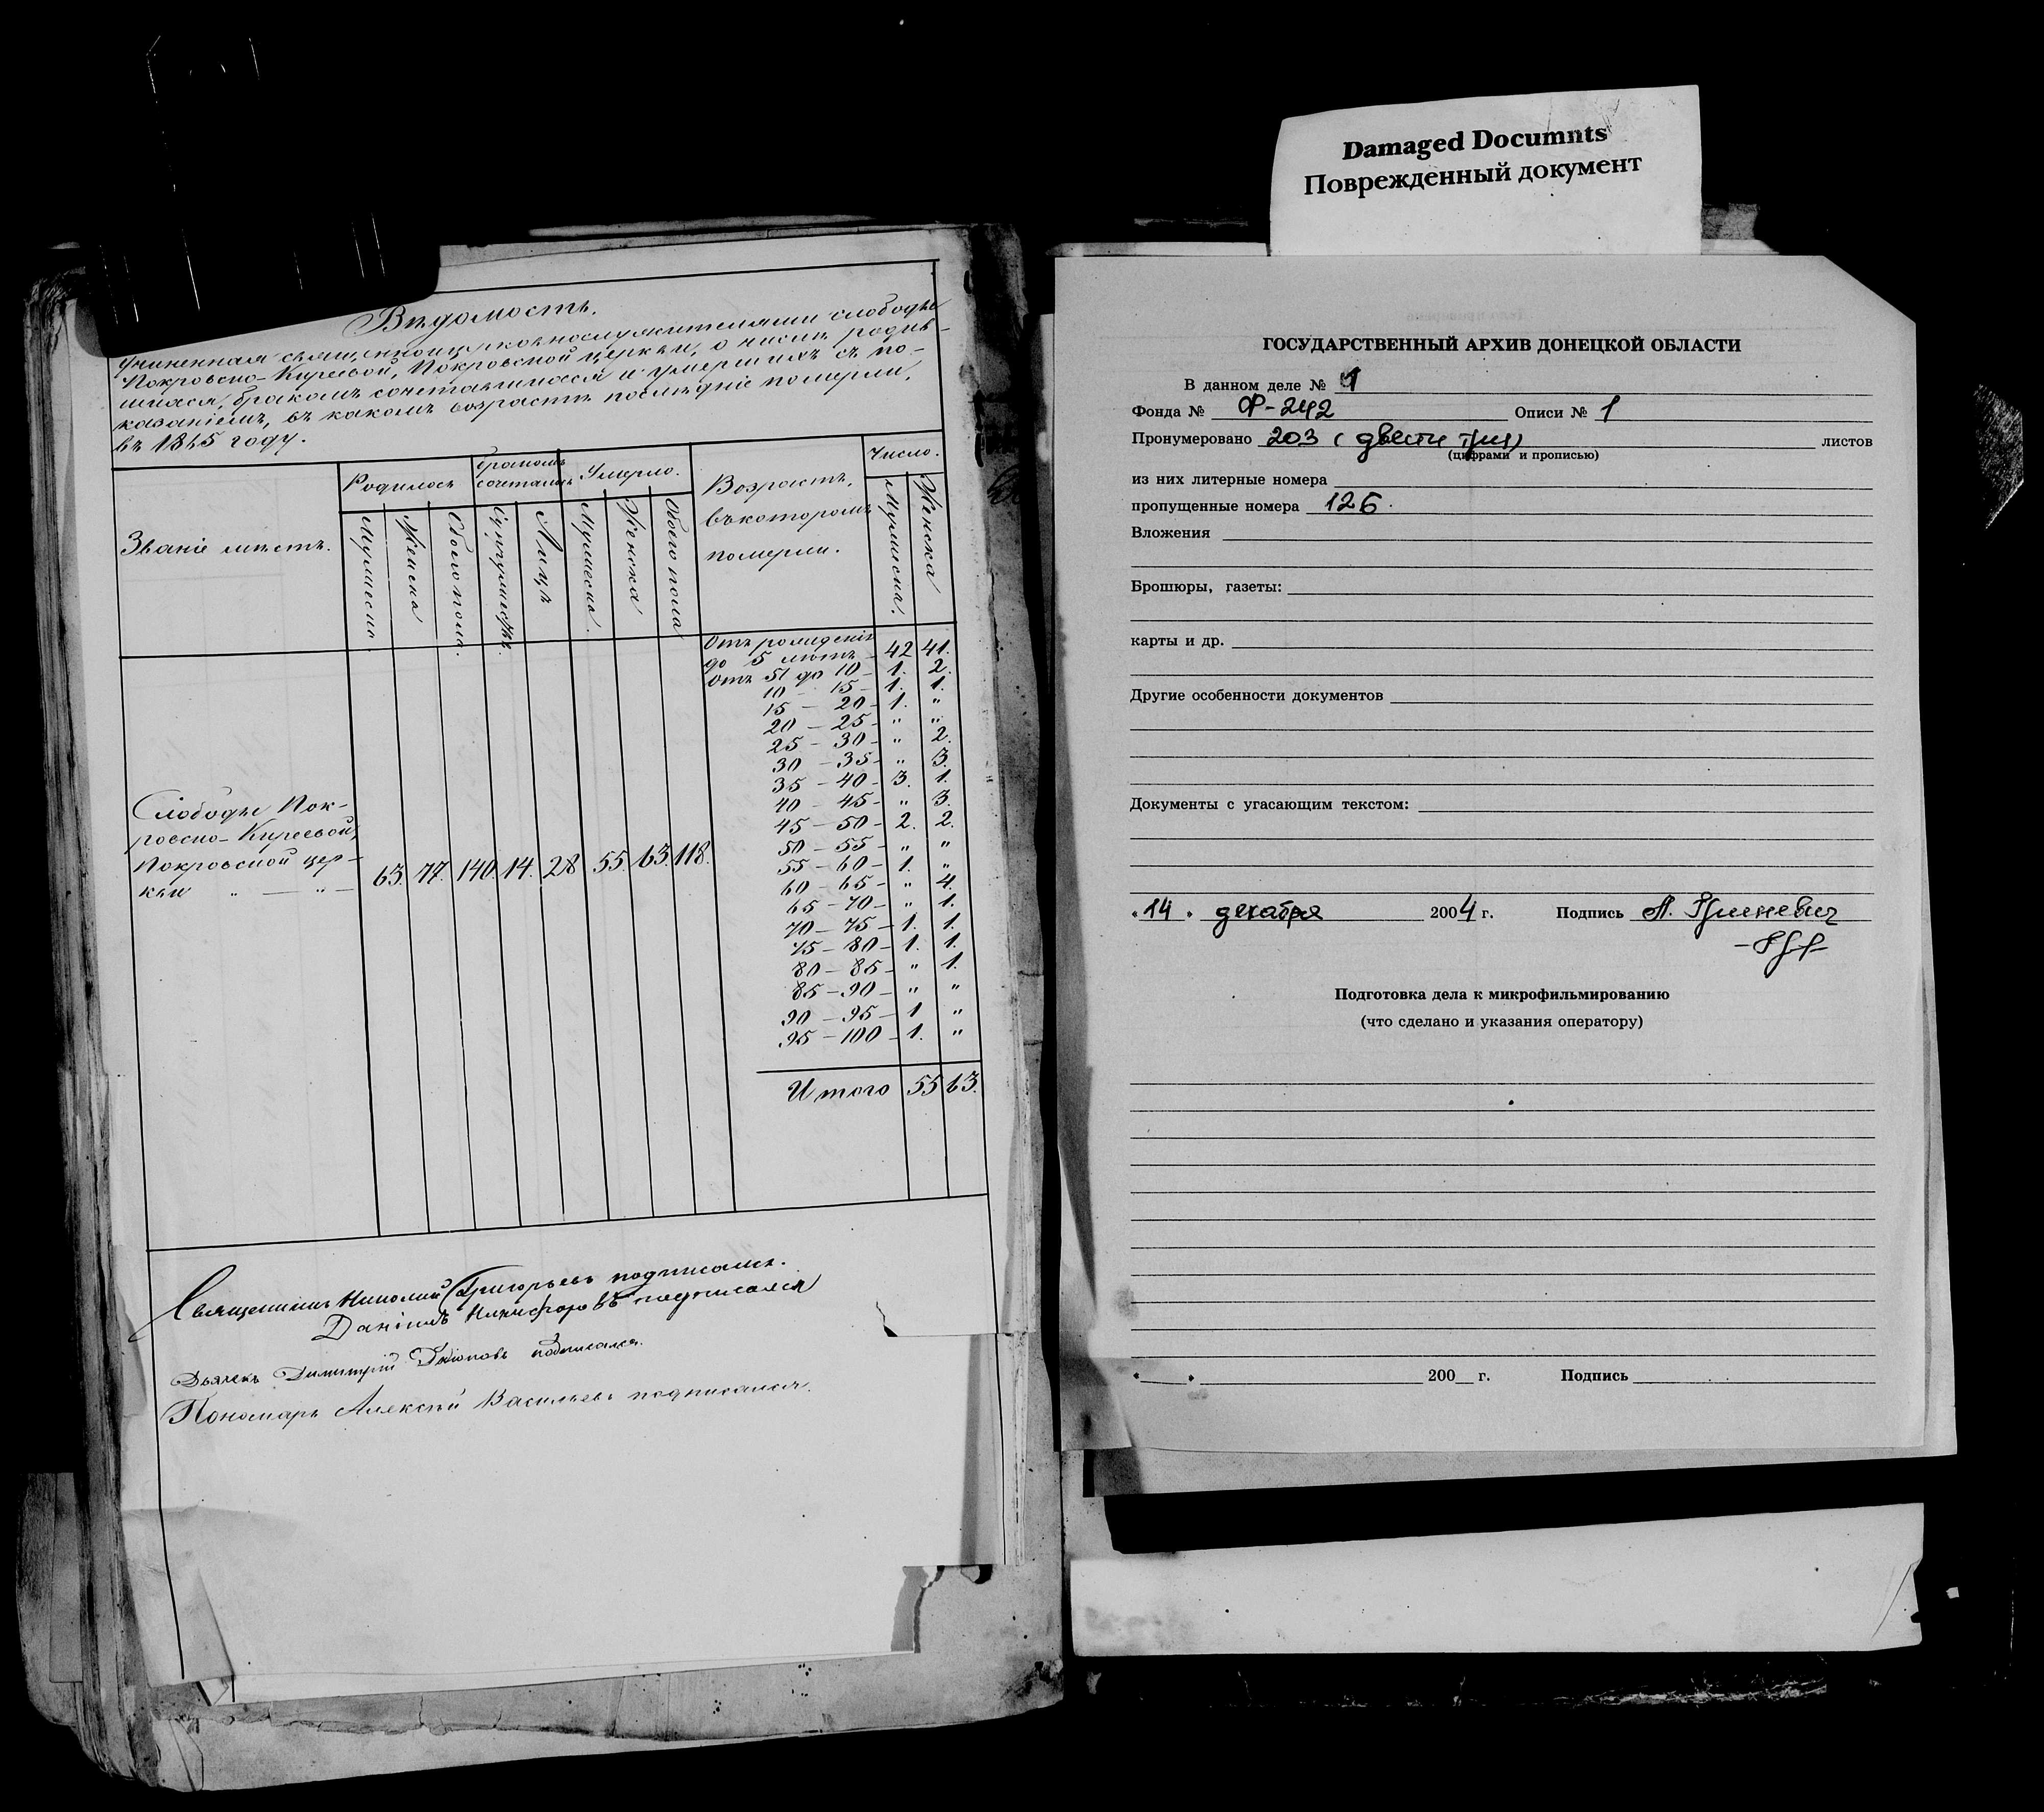 Вѣдомость.
учиненная священноцерковнослужителями слободы
Покровско-Киреевой, Покровской церкви, о числѣ родив-
шихся, бракомъ сочетавшихся и умершихъ съ по-
казаніемъ, въ какомъ возрастѣ послѣдніе померли,
въ 1865 году.
Званіе мѣстъ.
Родилось
Бракомъ сочетались
Умерло.
Возрастъ,
въ которомъ
померли.
Число.
Мужеска
Женска
Обоего пола.
Супружествъ.
Лицъ
Мужеска.
Женска
Обоего пола
Мужеска.
Женска
Слободы Пок-
ровско-Киреевой,
Покровской цер-
кви „ — „ —
63. 77. 140. 14. 28 55. 63. 118.
Отъ рожденія
до 5 лѣтъ – 42 41.
Отъ 5 до 10 – 1. 2.
10 – 15 – 1. 1.
15 – 20 – 1. „
20 – 25 – „ „
25 – 30 – „ 2.
30 – 35 – „ 3.
35 – 40 – 3. 1.
40 – 45 – „ 3.
45 – 50 – 2. 2.
50 – 55 – „ „
55 – 60 – 1. „
60 – 65 – „ 4.
65 – 70 – „ 1.
70 – 75 – 1. 1.
75 – 80 – 1. 1.
80 – 85 – „ 1.
85 – 90 – „ „
90 – 95 – 1 „
95 – 100 – 1. „
Итого 55 63.
Священникъ Николай Григорьевъ подписался.
Даніилъ Никифоровъ подписался
Дьячекъ Димитрій подписался.
Пономарь Алексѣй Васильевъ подписался.
Damaged Documnts
Поврежденный документ
ГОСУДАРСТВЕННЫЙ АРХИВ ДОНЕЦКОЙ ОБЛАСТИ
В данном деле № 1
Фонда № Ф-242 Описи № 1
Пронумеровано 203 (двести три) листов
(цифрами и прописью)
из них литерные номера
пропущенные номера 126.
Вложения
Брошюры, газеты:
карты и др.
Другие особенности документов
Документы с угасающим текстом:
«14» декабря 2004 г. Подпись Л. Гриневич
Подготовка дела к микрофильмированию
(что сделано и указания оператору)
200 г. Подпись